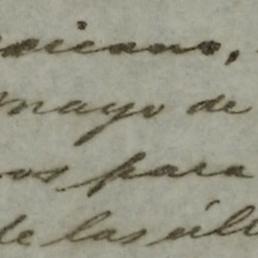 exicano,
mayo de
os para
de las últ